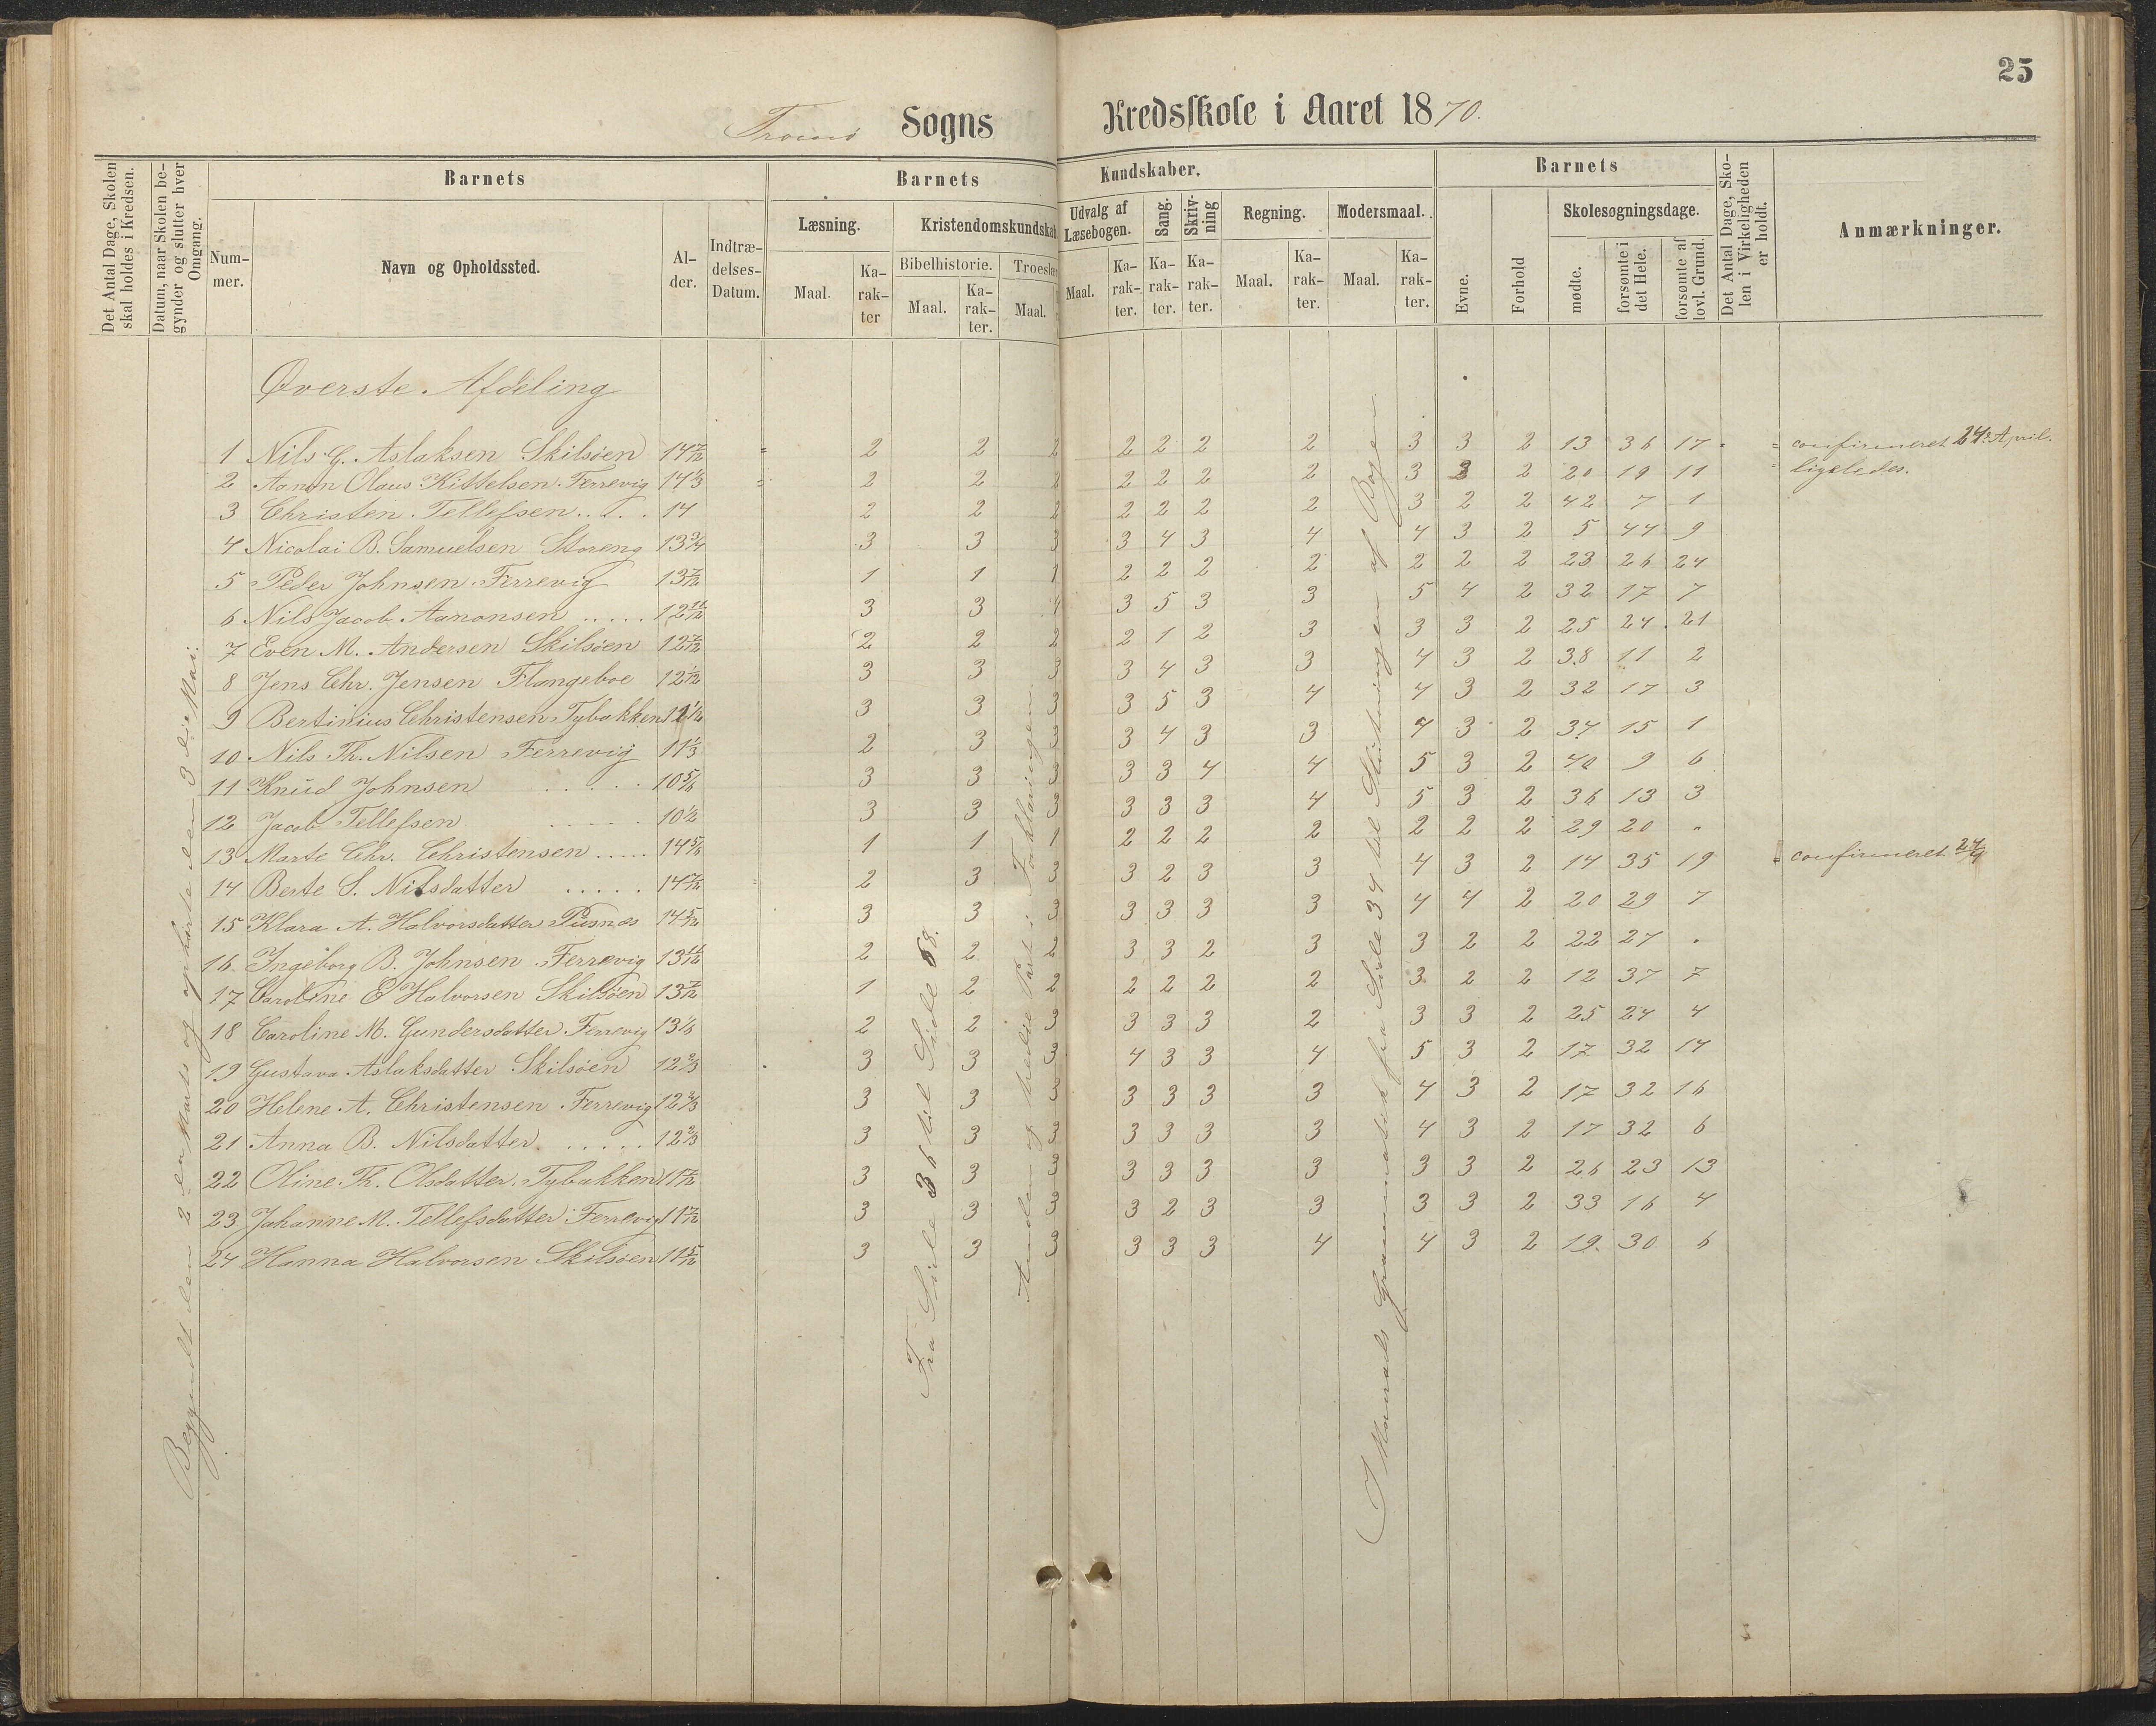 25
Tromø Sogns Kredsskole i Aaret 1870.
Det Antal Dage, Skolen skal holdes i Kredsen.
Datum, naar Skolen begynder og slutter hver Omgang.
Barnets
Nummer.
Navn og Opholdssted.
Alder.
Indtrædelses-Datum.
Barnets Kundskaber.
Læsning.
Maal.
Karakter
Kristendomskundskab
Bibelhistorie.
Maal.
Karakter.
Troeslæ
Maal.
Udvalg af Læsebogen.
Maal.
Karakter.
Sang.
Karakter.
Skrivning
Karakter.
Regning.
Maal.
Karakter.
Modersmaal.
Maal.
Karakter.
Barnets
Evne.
Forhold
Skolesøgningsdage.
mødte.
forsømte i det Hele.
forsømte af lovl. Grund.
Det Antal Dage, Skolen i Virkeligheden er holdt.
Anmærkninger.
Øverste Afdeling
1 Nils G. Aslaksen Skilsøen 14 7/12 " 2 2 2 2 2 2 2 3 3 2 13 36 17 " confirmeret 24. April.
2 Aanon Olaus Kittelsen Ferrevig 14 1/3 " 2 2 2 2 2 2 2 3 3 2 20 19 11 " ligeledes.
3 Christen Tellefsen . . . . 14 2 2 2 2 2 2 2 3 2 2 42 7 1
4 Nicolai B. Samuelsen Storeng 13 3/4 3 3 3 3 4 3 4 4 3 2 5 44 9
5 Peder Johnsen Ferrevig 13 7/12 1 1 1 2 2 2 2 2 2 2 23 26 24
6 Nils Jacob Aanonsen . . . . . 12 11/12 3 3 4 3 5 3 3 5 4 2 32 17 7
7 Even M. Andersen Skilsøen 12 7/12 2 2 2 2 1 2 3 3 3 2 25 24 21
8 Jens Chr. Jensen Flangeboe 12 1/2 3 3 3 3 4 3 3 4 3 2 38 11 2
9 Bertinius Christensen Tybakken 12 1/12 3 3 3 3 5 3 4 4 3 2 32 17 3
10 Nils Th. Nilsen Ferrevig 11 1/3 2 3 3 3 4 3 3 4 3 2 34 15 1
11 Knud Johnsen . . . . . 10 5/6 3 3 3 3 3 4 4 5 3 2 40 9 6
12 Jacob Tellefsen . . . . . 10 1/2 3 3 3 3 3 3 4 5 3 2 36 13 3
13 Marte Chr. Christensen . . . . . 14 5/6 1 1 1 2 2 2 2 2 2 2 29 20 "
14 Berte S. Nilsdatter . . . . . 14 7/12 " 2 3 3 3 2 3 3 4 3 2 14 35 19 confirmeret 24/4
15 Klara A. Halvorsdatter Pusnæs 14 5/12 3 3 3 3 3 3 3 4 4 2 20 29 7
16 Ingeborg B. Johnsen Ferrevig 13 11/12 2 2 2 3 3 2 3 3 2 2 22 27 "
17 Caroline E Halvorsen Skilsøen 13 7/12 1 2 2 2 2 2 2 3 2 2 12 37 7
18 Caroline M. Gundersdatter Ferrevig 13 1/6 2 2 3 3 3 3 2 3 3 2 25 24 4
19 Gustava Aslaksdatter Skilsøen 12 2/3 3 3 3 4 3 3 4 5 3 2 17 32 14
20 Helene A. Christensen Ferrevig 12 2/3 3 3 3 3 3 3 3 4 3 2 17 32 16
21 Anna B. Nilsdatter . . . . . 12 2/3 3 3 3 3 3 3 3 4 3 2 17 32 6
22 Oline Th. Olsdatter Tybakken 11 7/12 3 3 3 3 3 3 3 3 3 2 26 23 13
23 Johanne M. Tellefsdatter Ferrevig 11 7/12 3 3 3 3 2 3 3 3 3 2 33 16 4
24 Hanna Halvorsen Skilsøen 11 5/12 3 3 3 3 3 3 4 4 3 2 19 30 6
Begyndt den 2den Marts og ophørte den 3die Mai.
Fra Side 36 til Side 58.
Anden og tredie Part i Forklaringen.
I Maurads Grammatik fra Side 34 til Slutningen af Bogen.